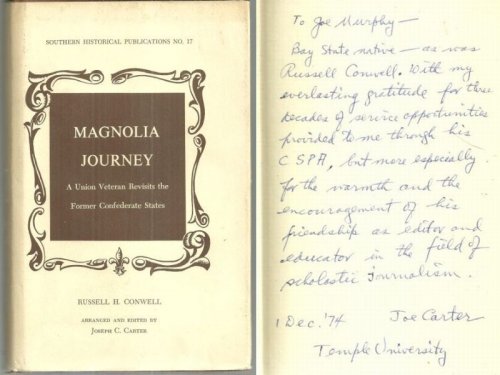 SOUTHERN HISTORICAL PUBLICATIONS NO. 17
MAGNOLIA
JOURNEY
A Union Veteran Revisits the
Former Confederate States
RUSSELL H. CONWELL
ARRANGED AND EDITED BY
JOSEPH C. CARTER
To Joe Murphy—
Bay State native — as was
Russell Conwell. With my
everlasting gratitude for three
decades of service opportunities
provided to me through his
CSPA, but more especially
for the warmth and the
encouragement of his
friendship as editor and
educator in the field of
scholastic journalism.
1 Dec. '74 Joe Carter
Temple University